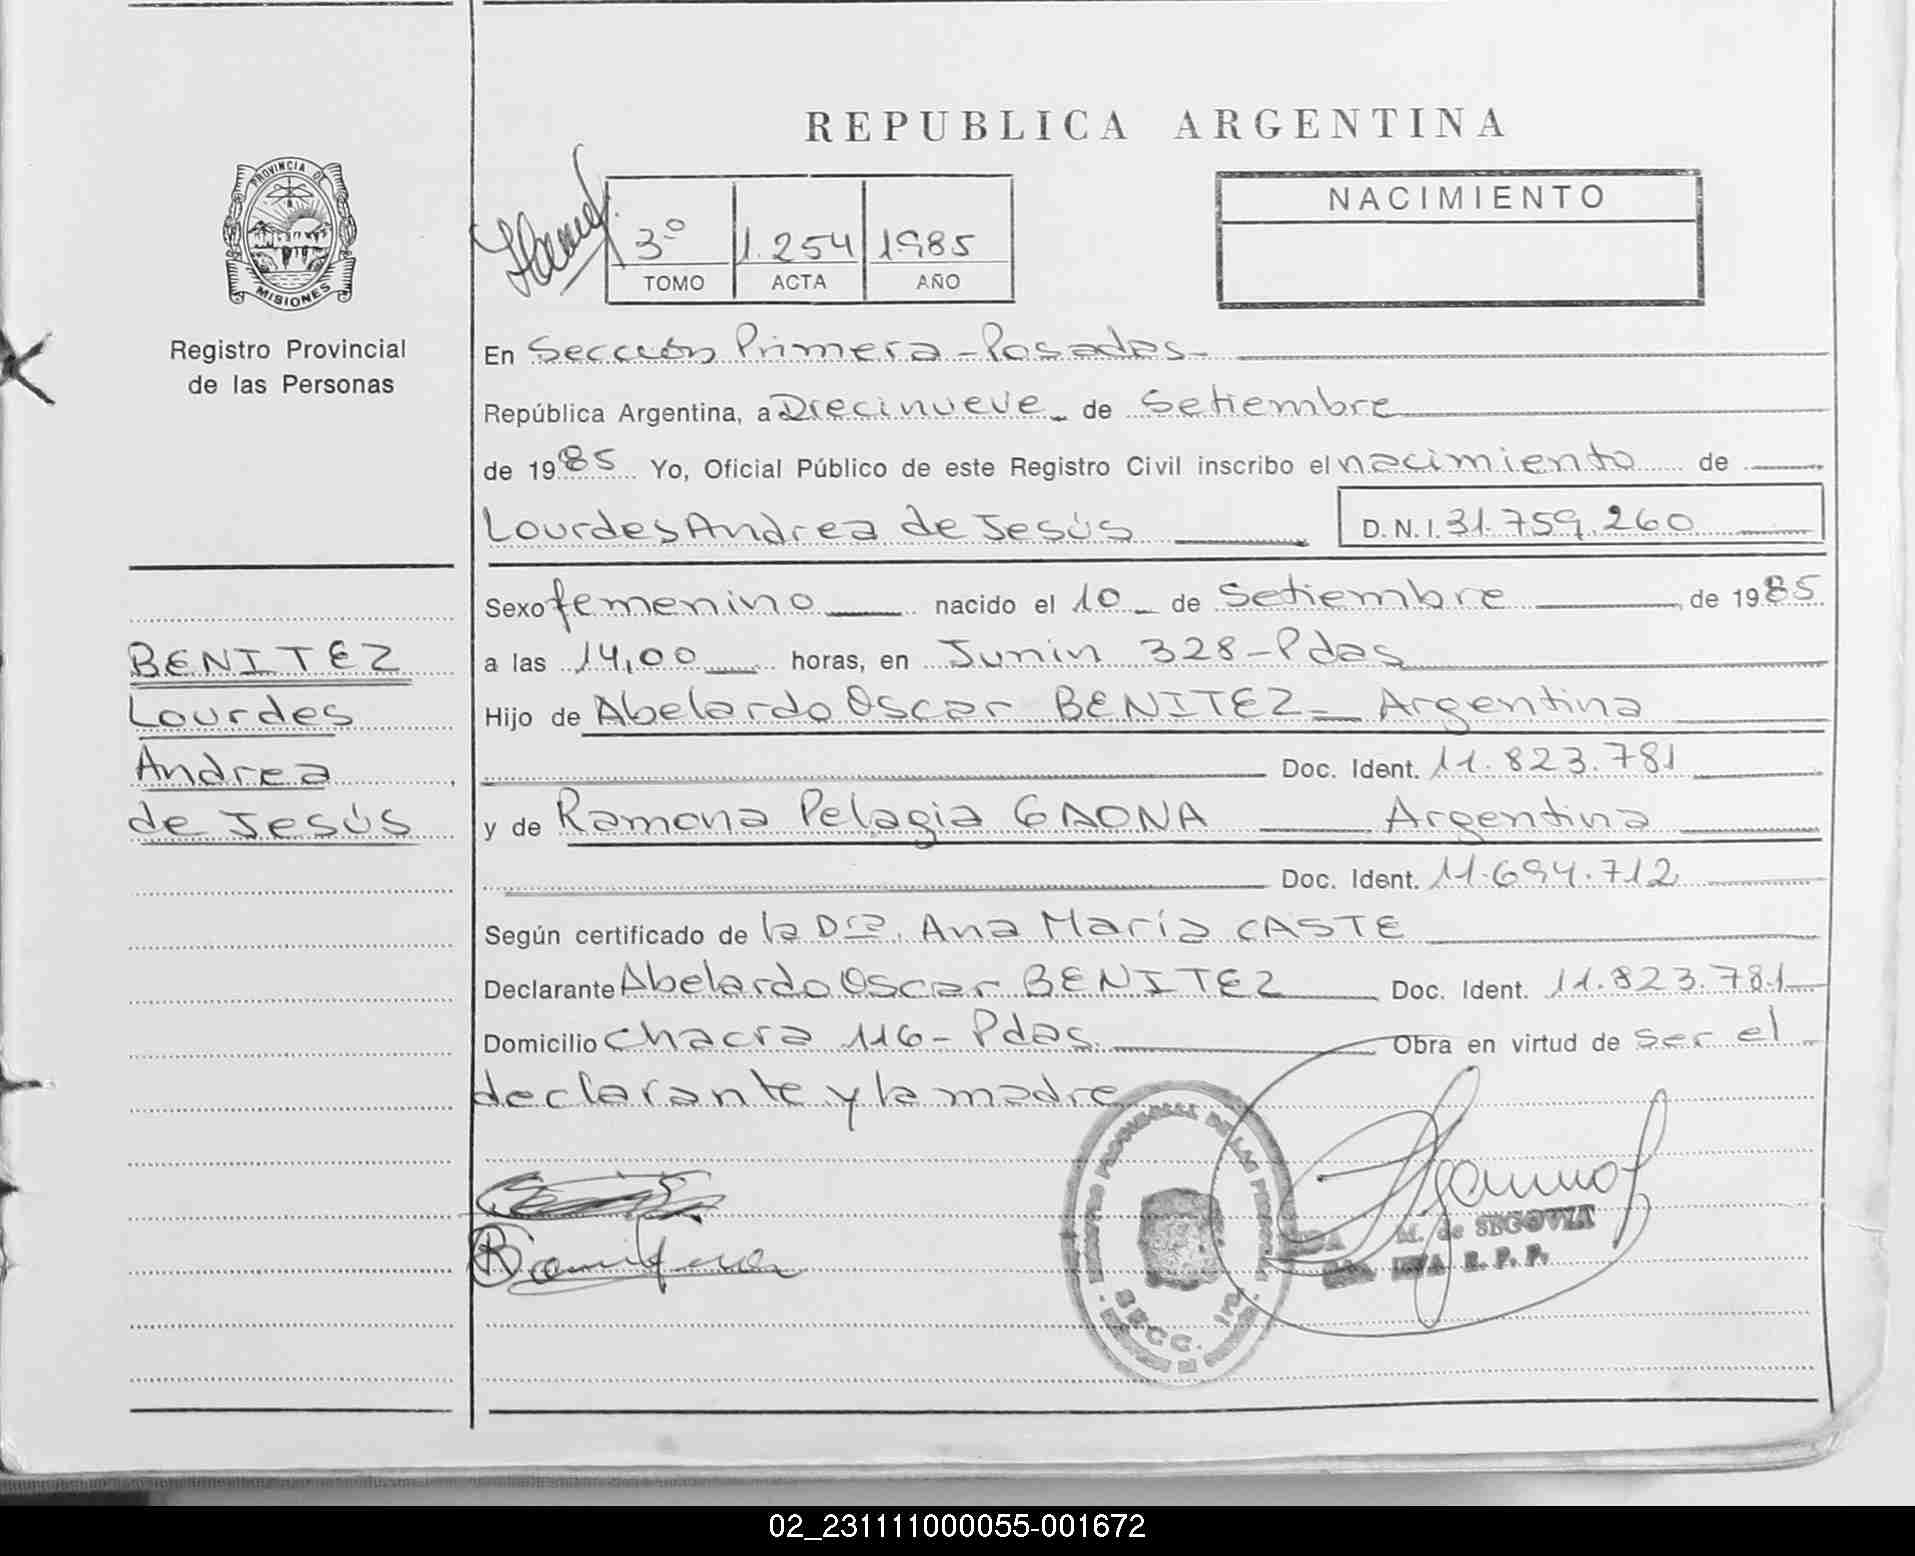 REPUBLICA ARGENTINA
PROVINCIA DE
MISIONES
Registro Provincial
de las Personas
3º 1.254 1985
TOMO ACTA AÑO
NACIMIENTO
En Sección Primera - Posadas
República Argentina, a Diecinueve de Setiembre
de 1985 Yo, Oficial Público de este Registro Civil inscribo el nacimiento de
Lourdes Andrea de Jesús D.N.I. 31.759.260
Sexo femenino nacido el 10 de Setiembre de 1985
a las 14,00 horas, en Junin 328 - Pdas
Hijo de Abelardo Oscar BENITEZ - Argentina
Doc. Ident. 11.823.781
y de Ramona Pelagia GAONA Argentina
Doc. Ident. 11.694.712
Según certificado de la Dra. Ana María CASTE
Declarante Abelardo Oscar BENITEZ Doc. Ident. 11.823.781
Domicilio Chacra 116 - Pdas. Obra en virtud de ser el
declarante y la madre
BENITEZ
Lourdes
Andrea
de Jesús
REGISTRO PROVINCIAL DE LAS PERSONAS
SECC. 1ª
M. de SEGOVIA
R. P. P.
02_231111000055-001672